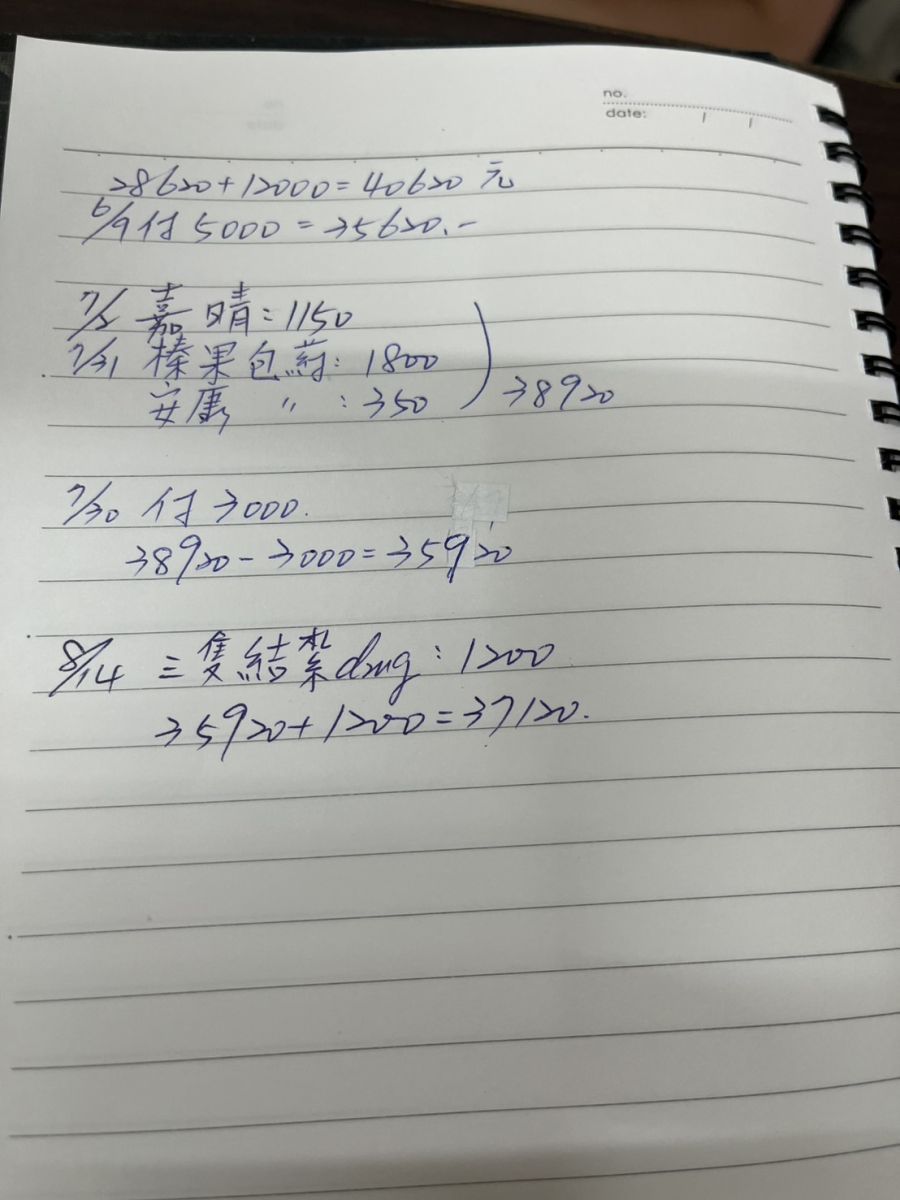 no.
date: / /
28620+12000=40620 元
6/9付 5000 = 35620.-
7/5 嘉晴:1150
7/31 榛果包葯: 1800
安康 〃 : 350 ) 38920
7/30 付 3000.
38920-3000=35920
8/14 三隻結紮dmg:1200
35920+1200=37120.